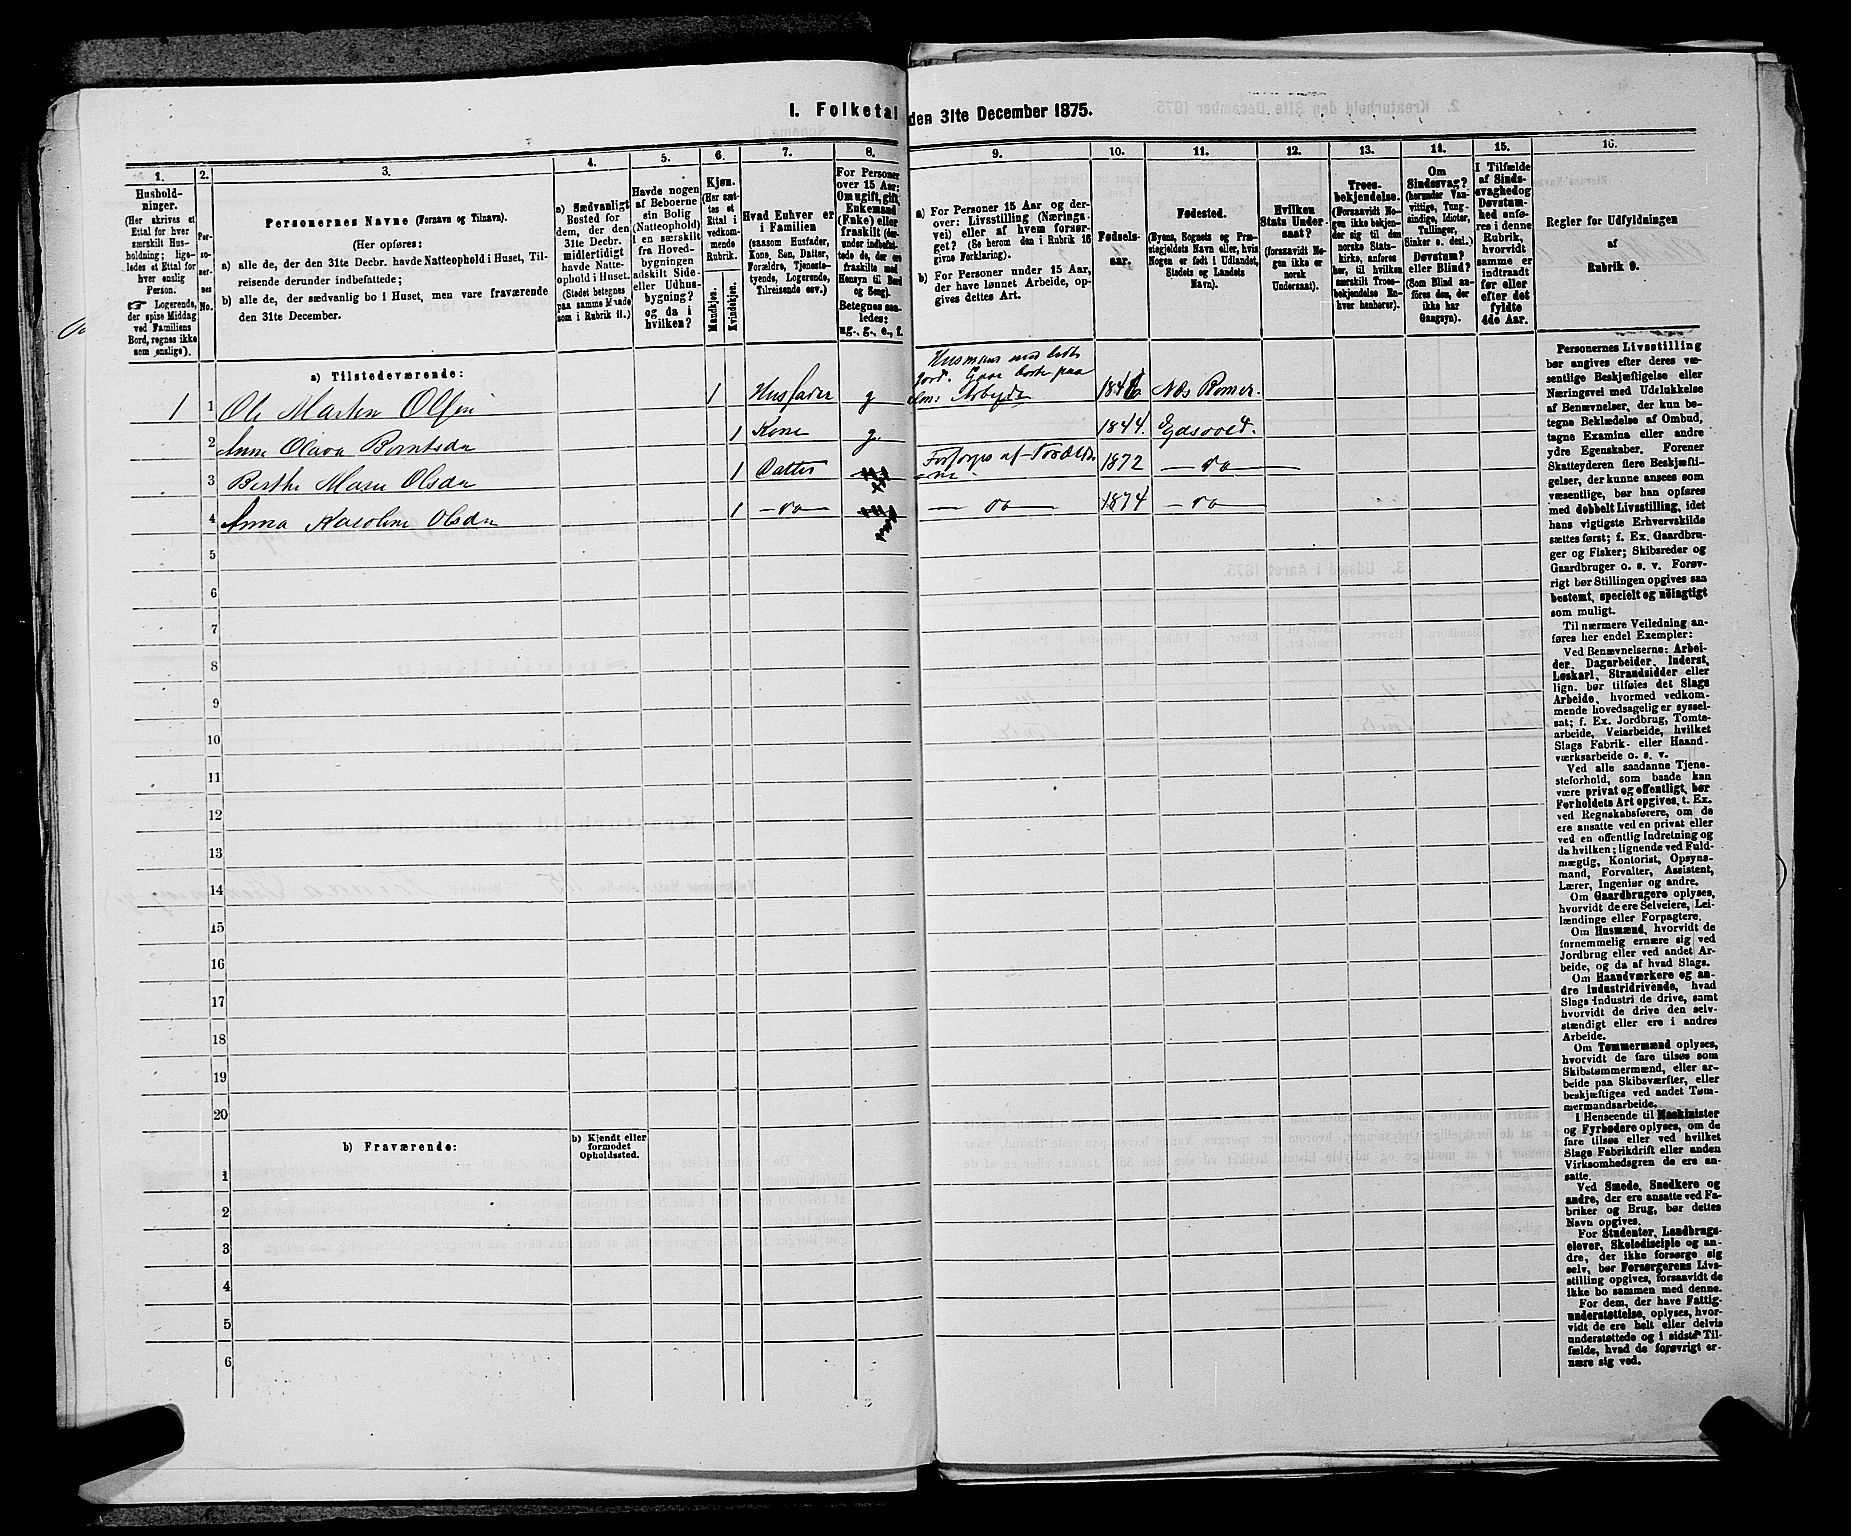 I. Folketal den 31te December 1875.
1.
Husholdninger.
(Her skrives et
Ettal for hver
særskilt Husholdning;
ligeledes et Ettal for
hver enslig
Person.
☞ Logerende,
der spise Middag
ved Familiens
Bord, regnes ikke
som enslige).
2.
Personernes
No.
3.
Personernes Navne (Fornavn og Tilnavn).
(Her opføres:
a) alle de, der den 31te Decbr. havde Natteophold i Huset, Tilreisende
derunder indbefattede;
b) alle de, der sædvanlig bo i Huset, men vare fraværende
den 31te December.
4.
a) Sædvanligt
Bosted for
dem, der den
31te Decbr.
midlertidigt
havde Natteophold
i Huset.
(Stedet betegnes
paa samme Maade
som i Rubrik 11.)
5.
Havde nogen
af Beboerne
sin Bolig
(Natteophold)
i en særskilt
fra Hovedbygningen
adskilt Side-
eller Udhusbygning?
og da i
hvilken?
6.
Kjøn.
(Her sættes
et
Ettal i
vedkommende
Rubrik.
Mandkjøn.
Kvindekjøn.
7.
Hvad Enhver er
i Familien
(saasom Husfader,
Kone, Søn, Datter,
Forældre, Tjenestetyende,
Logerende,
Tilreisende osv.)
8.
For Personer
over 15 Aar:
Om ugift, gift,
Enkemand
(Enke) eller
fraskilt (derunder
indbefattede
de, der ere
fraskilte med
Hensyn til Bord
og Seng).
Betegnes saaledes:
ug., g., e., f.
9.
a) For Personer 15 Aar og derover:
Livsstilling (Næringsvei)
eller af hvem forsørget?
(Se herom den i Rubrik 16
givne Forklaring).
b) For Personer under 15 Aar,
der have lønnet Arbeide, opgives
dettes Art.
10.
Fødselsaar.
11.
Fødested.
(Byens, Sognets og Præstegjeldets
Navn eller, hvis
Nogen er født i Udlandet,
Stedets og Landets
Navn).
12.
Hvilken
Stats Undersaat?
(forsaavidt Nogen
ikke er
norsk
Undersaat).
13.
Troesbekjendelse.
(Forsaavidt Nogen
ikke bekjender
sig til den
norske Statskirke,
anføres
her, til hvilken
særskilt Troesbekjendelse
Enhver
henhører).
14.
Om
Sindssvag?
(herunder Vanvittige,
Tungsindige,
Idioter,
Tullinger,
Sinker o. desl.)
Døvstum?
eller Blind?
(Som Blind anføres
den, der
ikke har
Gangsyn).
15.
I Tilfælde
af Sindssvaghed og
Døvstumhed
anføres
i denne
Rubrik,
hvorvidt
samme er
indtraadt
før eller
efter det
fyldte
4de Aar.
16.
Regler for Udfyldningen
af
Rubrik 9.
a) Tilstedeværende:
Husmand med
jord. Gaar paa
1 1 Ole Martin Olsen 1 Husfader g Arbeide 1846 Næs Romer.
2 Anne Olava Berntsda 1 Kone g. 1844. Edsvold.
3 Berthe Marie Olsda 1 Datter Forsørges af 1872 — do —
4 Anna Karoline Olsda 1 — do — — do — 1874 — do —
5
6
7
8
9
10
11
12
13
14
15
16
17
18
19
20
b) Fraværende:
b) Kjendt eller
formodet
Opholdssted.
1
2
3
4
5
6
Personernes Livsstilling
bør angives efter deres væsentlige
Beskjæftigelse eller
Næringsvei med Udelukkelse
af Benævnelser, der kun betegne
Beklædelse af Ombud,
tagne Examina eller andre
ydre Egenskaber. Forener
Skatteyderen flere Beskjæftigelser,
der kunne ansees som
væsentlige, bør han opføres
med dobbelt Livsstilling, idet
hans vigtigste Erhvervskilde
sættes først; f. Ex. Gaardbruger
og Fisker; Skibsreder og
Gaardbruger o. s. v. Forøvrigt
bør Stillingen opgives saa
bestemt, specielt og nöiagtigt
som muligt.
Til nærmere Veiledning anføres
her endel Exempler:
Ved Benævnelserne: Arbeider,
Dagarbeider, Inderst,
Løskarl, Strandsidder eller
lign. bør tilføies det Slags
Arbeide, hvormed vedkommende
hovedsagelig er sysselsat;
f. Ex. Jordbrug, Tomtearbeide,
Veiarbeide, hvilket
Slags Fabrik- eller Haandværksarbeide
o. s. v.
Ved alle saadanne Tjenesteforhold,
som baade kan
være privat og offentligt, bør
Forholdets Art opgives, t. Ex.
ved Regnskabsførere, om de
ere ansatte ved en privat eller
ved en offentlig Indretning og
da hvilken; lignende ved Fuldmægtig,
Kontorist, Opsynsmand,
Forvalter, Assistent,
Lærer, Ingeniør og andre.
Om Gaardbrugere oplyses,
hvorvidt de ere Selveiere, Leilændinge
eller Forpagtere.
Om Husmænd, hvorvidt de
fornemmelig ernære sig ved
Jordbrug eller ved andet Arbeide,
og da af hvad Slags.
Om Haandværkere og andre
Industridrivende, hvad
Slags Industri de drive, samt
hvorvidt de drive den selvstændigt
eller ere i andres
Arbeide.
Om Tømmermænd oplyses,
hvorvidt de fare tilsøs som
Skibstømmermænd, eller arbeide
paa Skibsværfter, eller
beskjæftiges ved andet Tømmermandsarbeide.
I Henseende til Maskinister
og Fyrbødere oplyses, om de
fare tilsøs eller ved hvilket
Slags Fabrikdrift eller anden
Virksomhedsgren de ere ansatte.
Ved Smede, Snedkere og
andre, der ere ansatte ved Fabriker
og Brug, bør dettes
Navn opgives.
For Studenter, Landbrugselever,
Skoledisciple og andre,
der ikke forsørge sig
selv, bør Forsørgerens Livsstilling
opgives, forsaavidt de
ikke bo sammen med denne.
For dem, der have Fattigunderstøttelse,
oplyses, hvorvidt
de ere helt eller delvis
understøttede og i sidste Tilfælde,
hvad de forøvrigt ernære
sig ved.